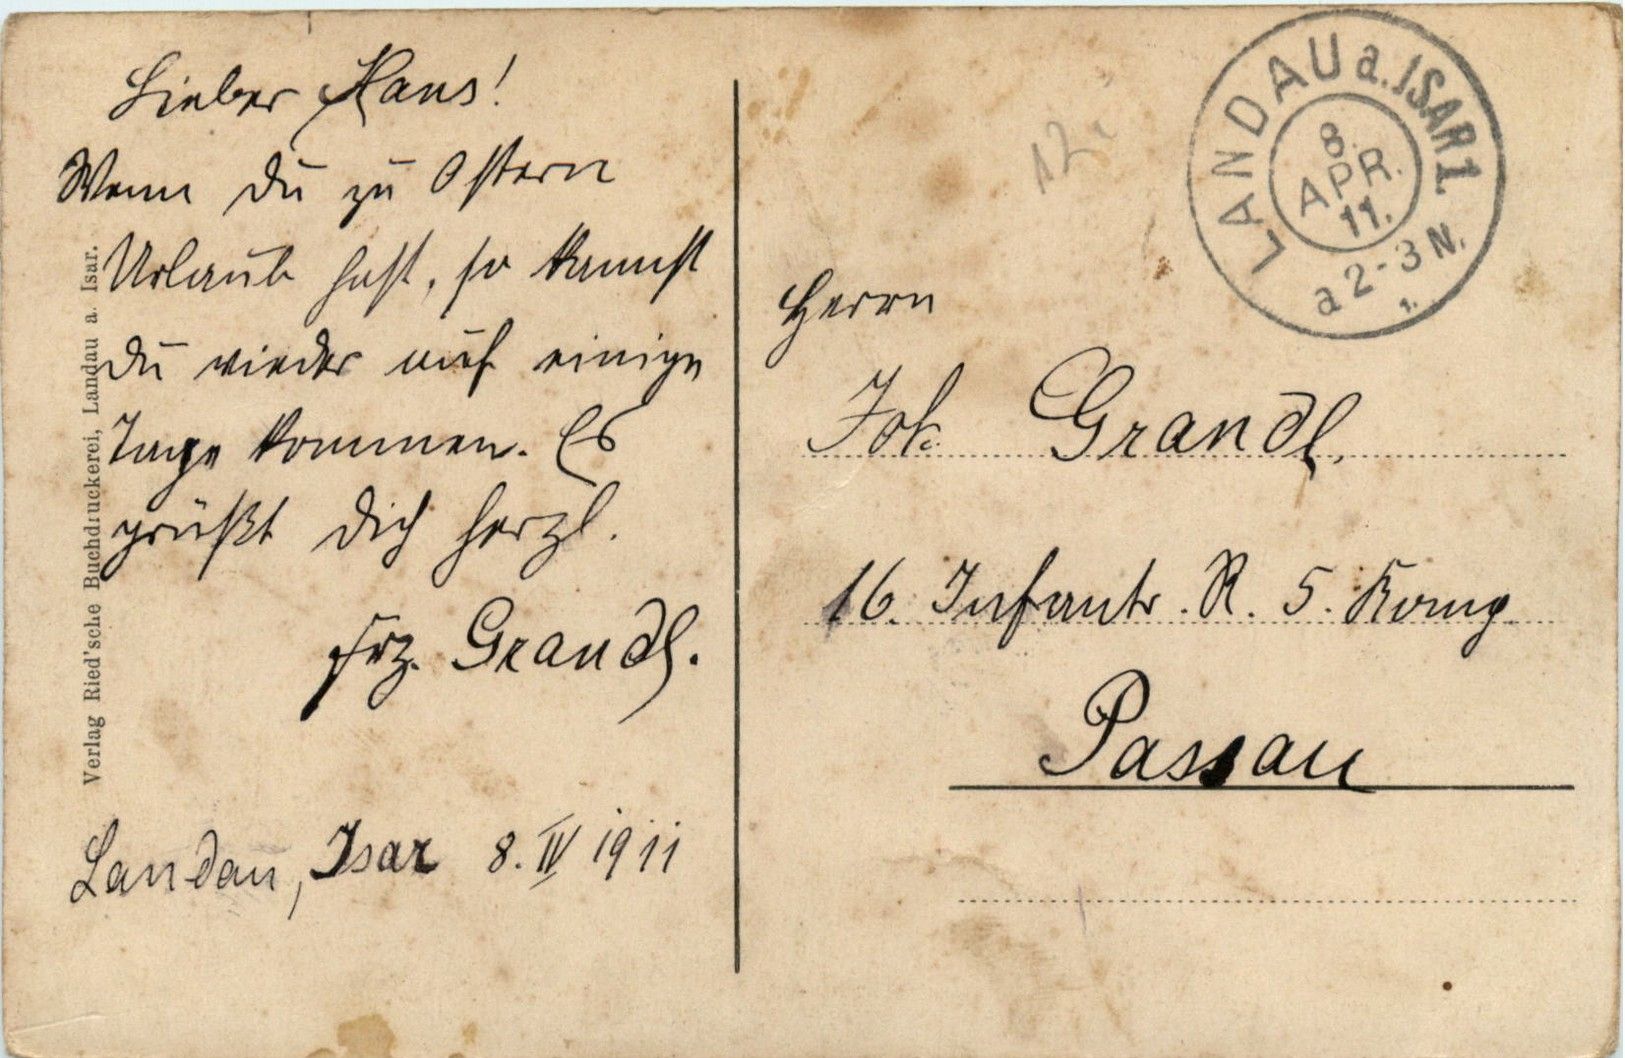 Lieber Hans!
Wenn du zu Ostern
Urlaub hast, so kannst
du wieder auf einige
Tage kommen. Es
grüßt dich herzl.
Frz. Grandl.
Landau, Isar 8. IV 1911
Verlag Ried'sche Buchdruckerei, Landau a. Isar.
LANDAU a. ISAR 1.
8.
APR.
11.
a 2-3 N.
1.
12
Herrn
Joh. Grandl,
16. Infantr. R. 5. Komp
Passau